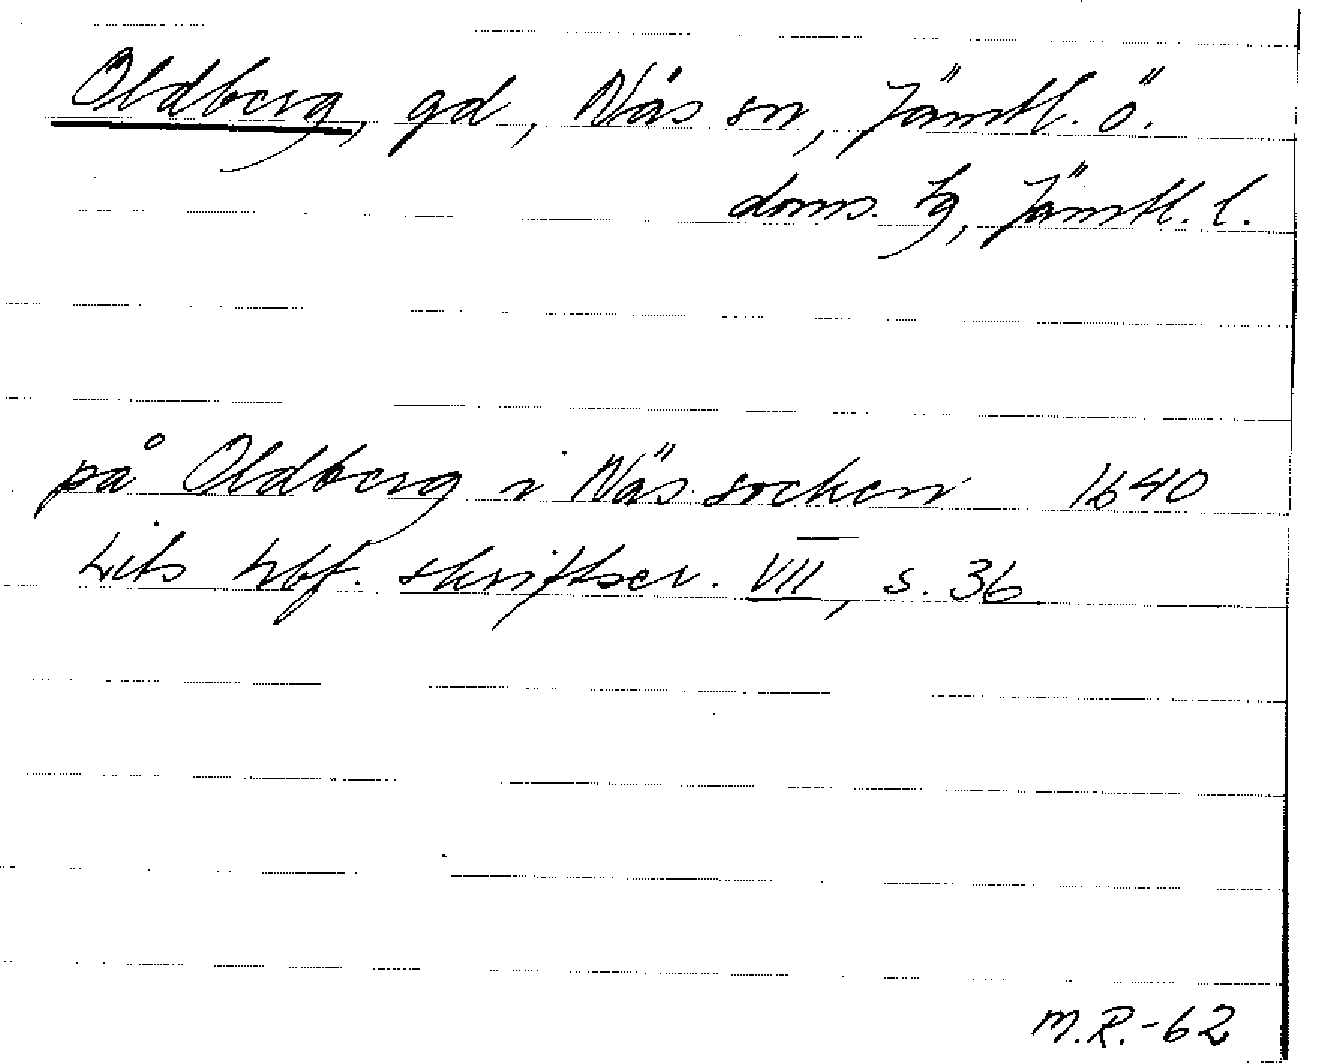 Oldberg, gd, Näs sn, Jämtl. ö.
doms. tg, Jämtl. l.
på Oldberg i Näs socken 1640
Lits hbf. skriftser. VII, s. 36
M.R.-62